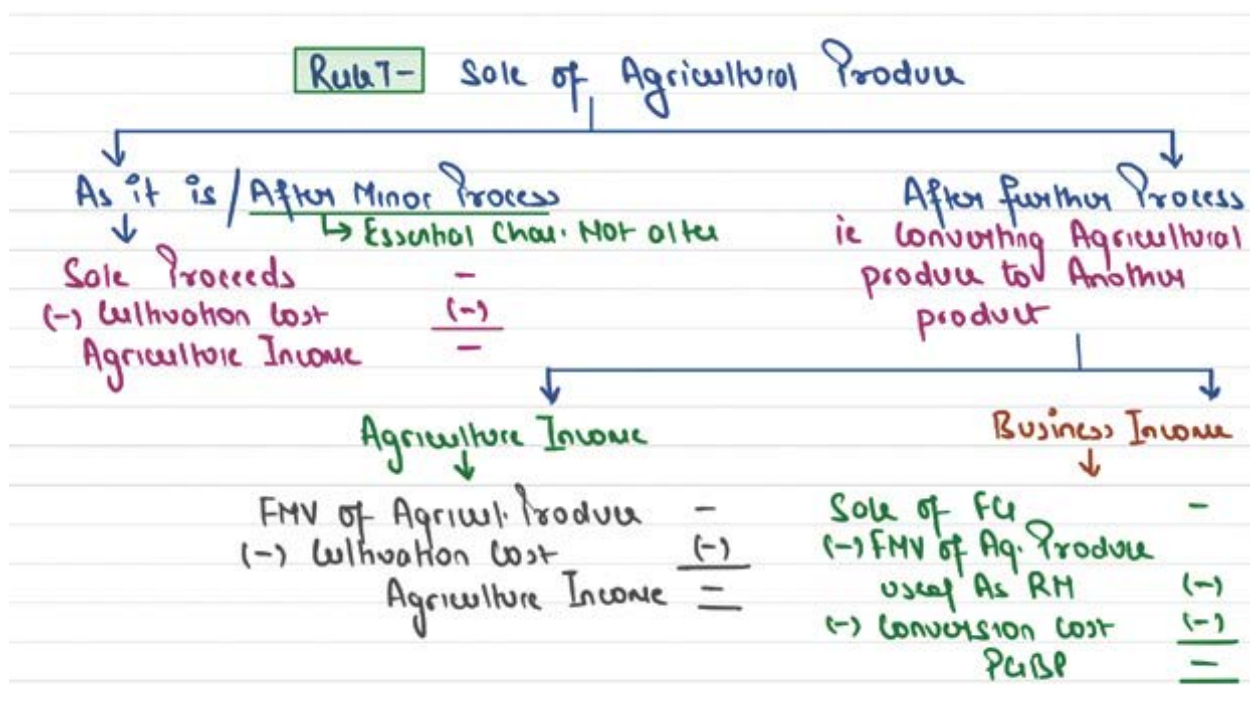 Rule 7- Sale of Agricultural Produce
As it is / After Minor Process
↳ Essential Char. Not alter
Sale Proceeds -
(-) Cultivation Cost (-)
Agriculture Income -
After further Process
ie Converting Agricultural
produce to Another
product
Agriculture Income
FMV of Agricul. Produce -
(-) Cultivation Cost (-)
Agriculture Income -
Business Income
Sale of FG -
(-) FMV of Ag. Produce
used As RM (-)
(-) Conversion Cost (-)
PGBP -